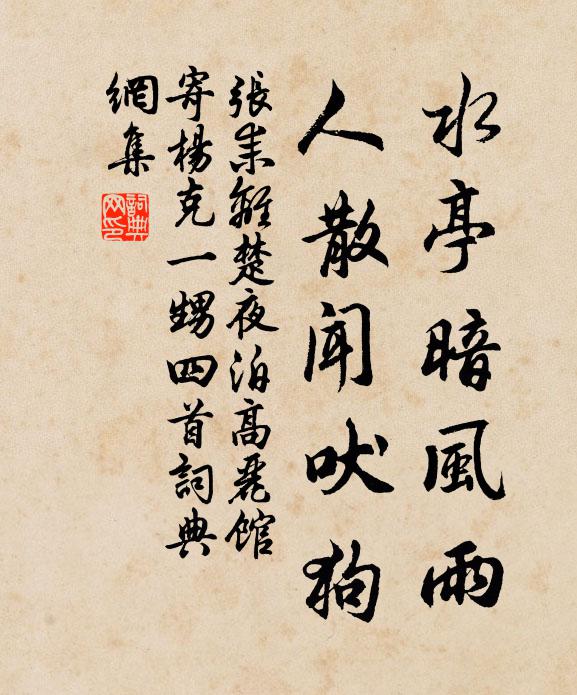 水亭暗風雨
人散聞吠狗
張耒離楚夜泊高麗館
寄楊克一甥四首詞典
網集
詞典網印